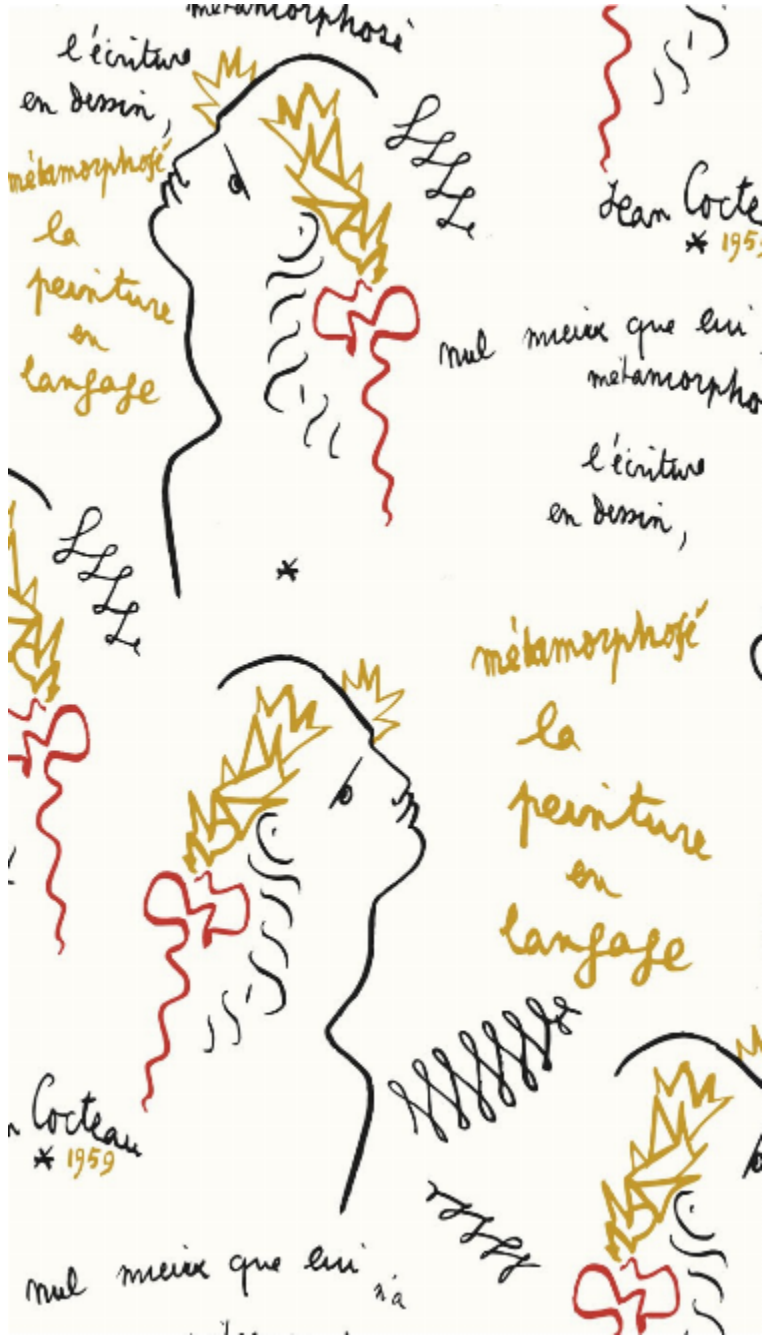 métamorphosé
l'écriture
en dessin,
métamorphosé
la
peinture
en
langage
Jean Cocte
* 1959
nul mieux que lui
métamorpho
l'écriture
en dessin,
métamorphosé
la
peinture
en
langage
n Cocteau
* 1959
nul mieux que lui n'a